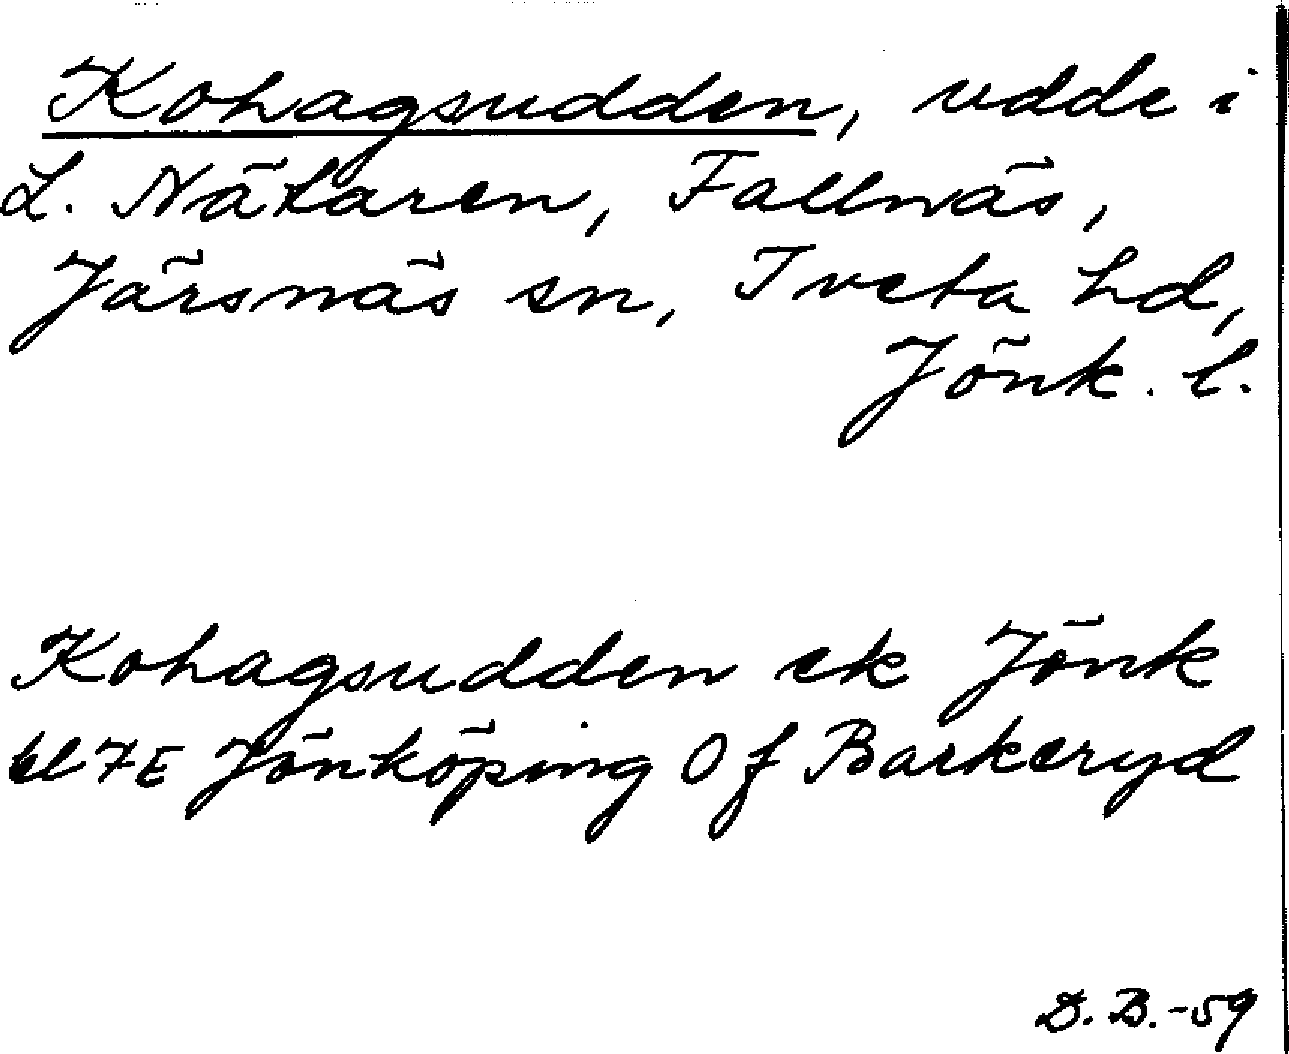 Kohagsudden, udde i
L. Nätaren, Fallnäs,
Järsnäs sn, Tveta hd,
Jönk. l.
Kohagsudden ek Jönk
bl 7E Jönköping Of Barkeryd
D.B.-59